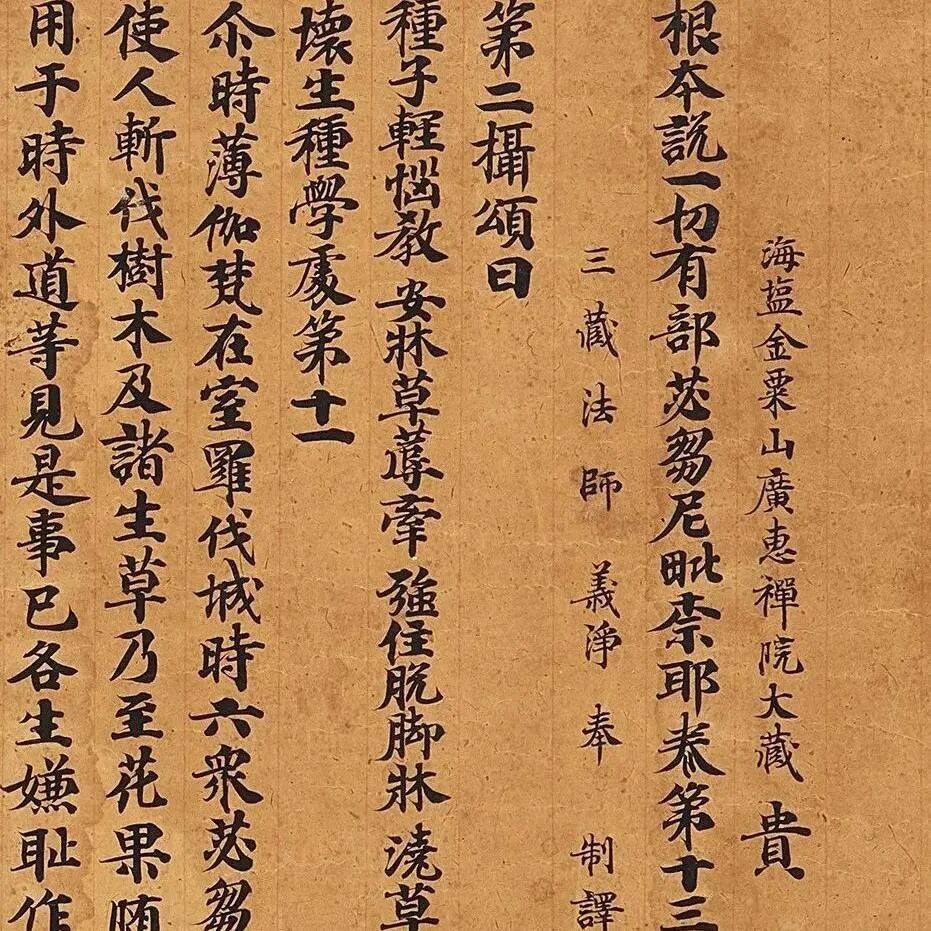 海塩金粟山廣惠禪院大藏 貴
根本說一切有部苾芻尼毗柰耶卷第十三
三藏法師 義淨 奉 制譯
第二攝頌曰
種子輕惱教 安牀草蓐牽 強住脫脚牀 澆草
壞生種學處第十一
尒時薄伽梵在室羅伐城時六衆苾芻
使人斬伐樹木及諸生草乃至花果
用于時外道等見是事已各生嫌恥作